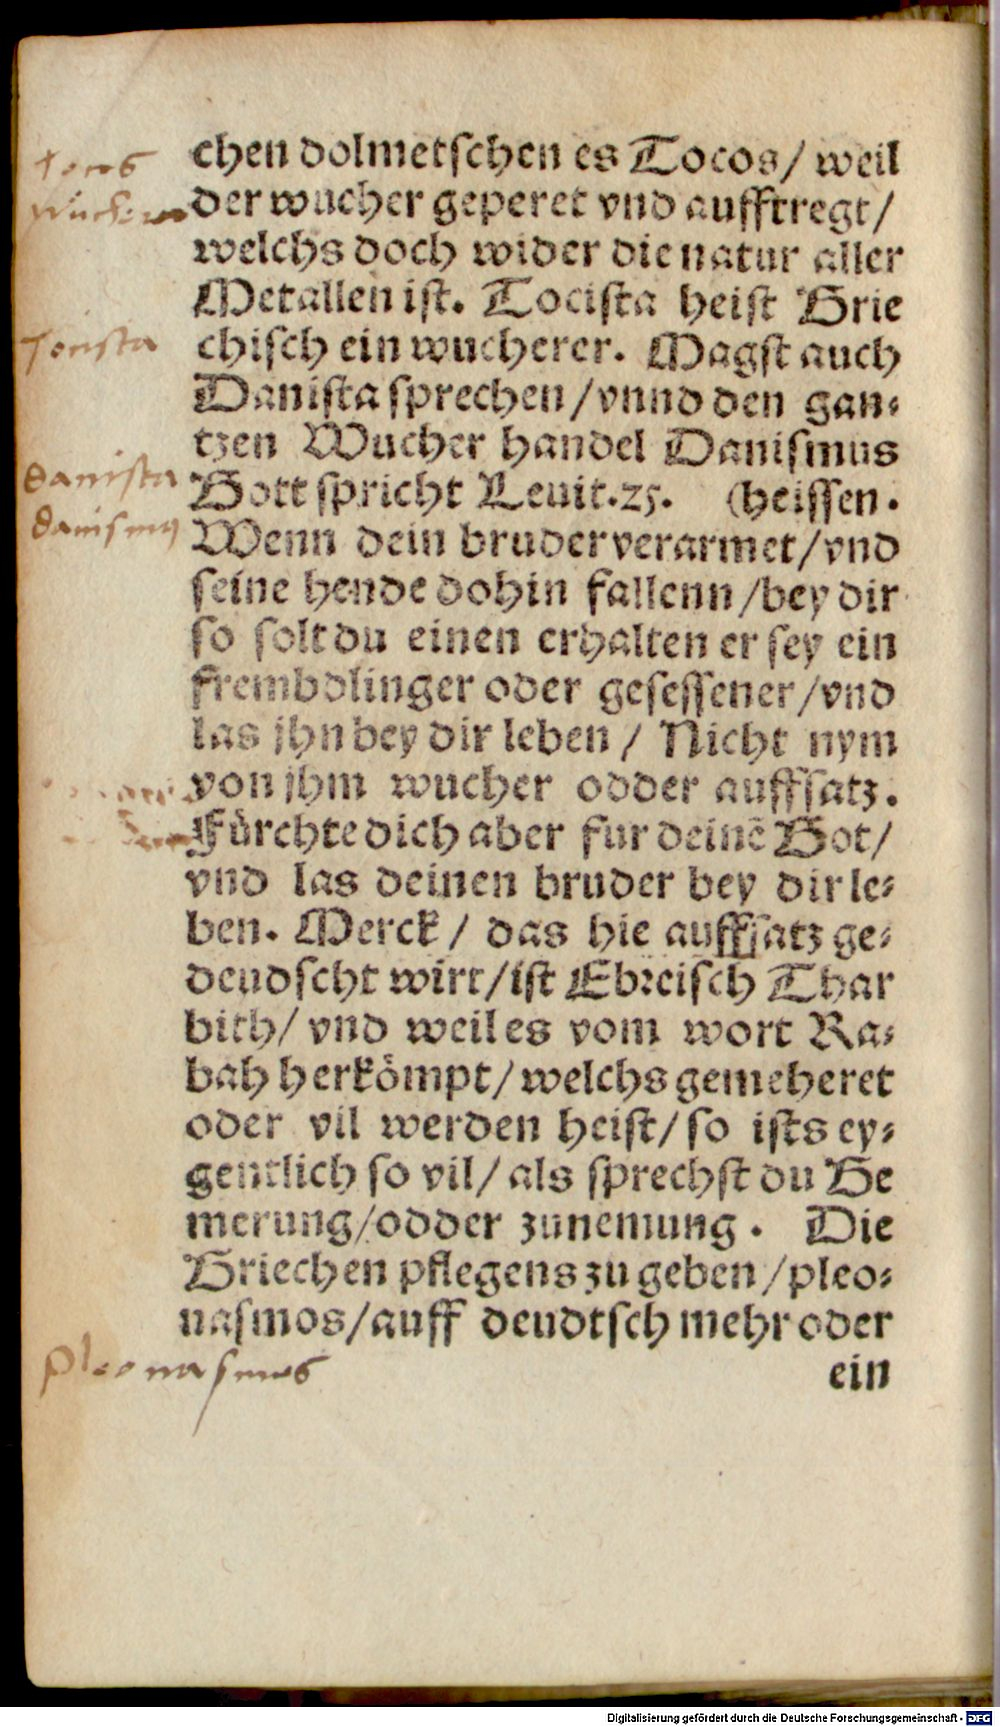 chen dolmetschen es Tocos/ weil
der wucher geperet vnd aufftregt/
welchs doch wider die natur aller
Metallen ist. Tocista heist Grie
chisch ein wucherer. Magst auch
Danista sprechen/vnnd den gan-
tzen Wucher handel Danismus
Gott spricht Leuit.25. (heissen.
Wenn dein bruder verarmet/vnd
seine hende dohin fallenn/bey dir
so solt du einen erhalten er sey ein
frembdlinger oder gesessener/vnd
las jhn bey dir leben/ Nicht nym
von jhm wucher odder auffsatz.
Fürchte dich aber fur deinē Got/
vnd las deinen bruder bey dir le-
ben. Merck/ das hie auffsatz ge-
deudscht wirt/ist Ebreisch Thar
bith/ vnd weil es vom wort Ra-
bah herkömpt/welchs gemeheret
oder vil werden heist/so ists ey-
gentlich so vil/als sprechst du Ge
merung/odder zunemung. Die
Griechen pflegens zu geben/pleo-
nasmos/auff deudtsch mehr oder
ein
Tocos
Wucher
Tocista
Danista
Danismus
Pleonasmus
Digitalisierung gefördert durch die Deutsche Forschungsgemeinschaft - DFG